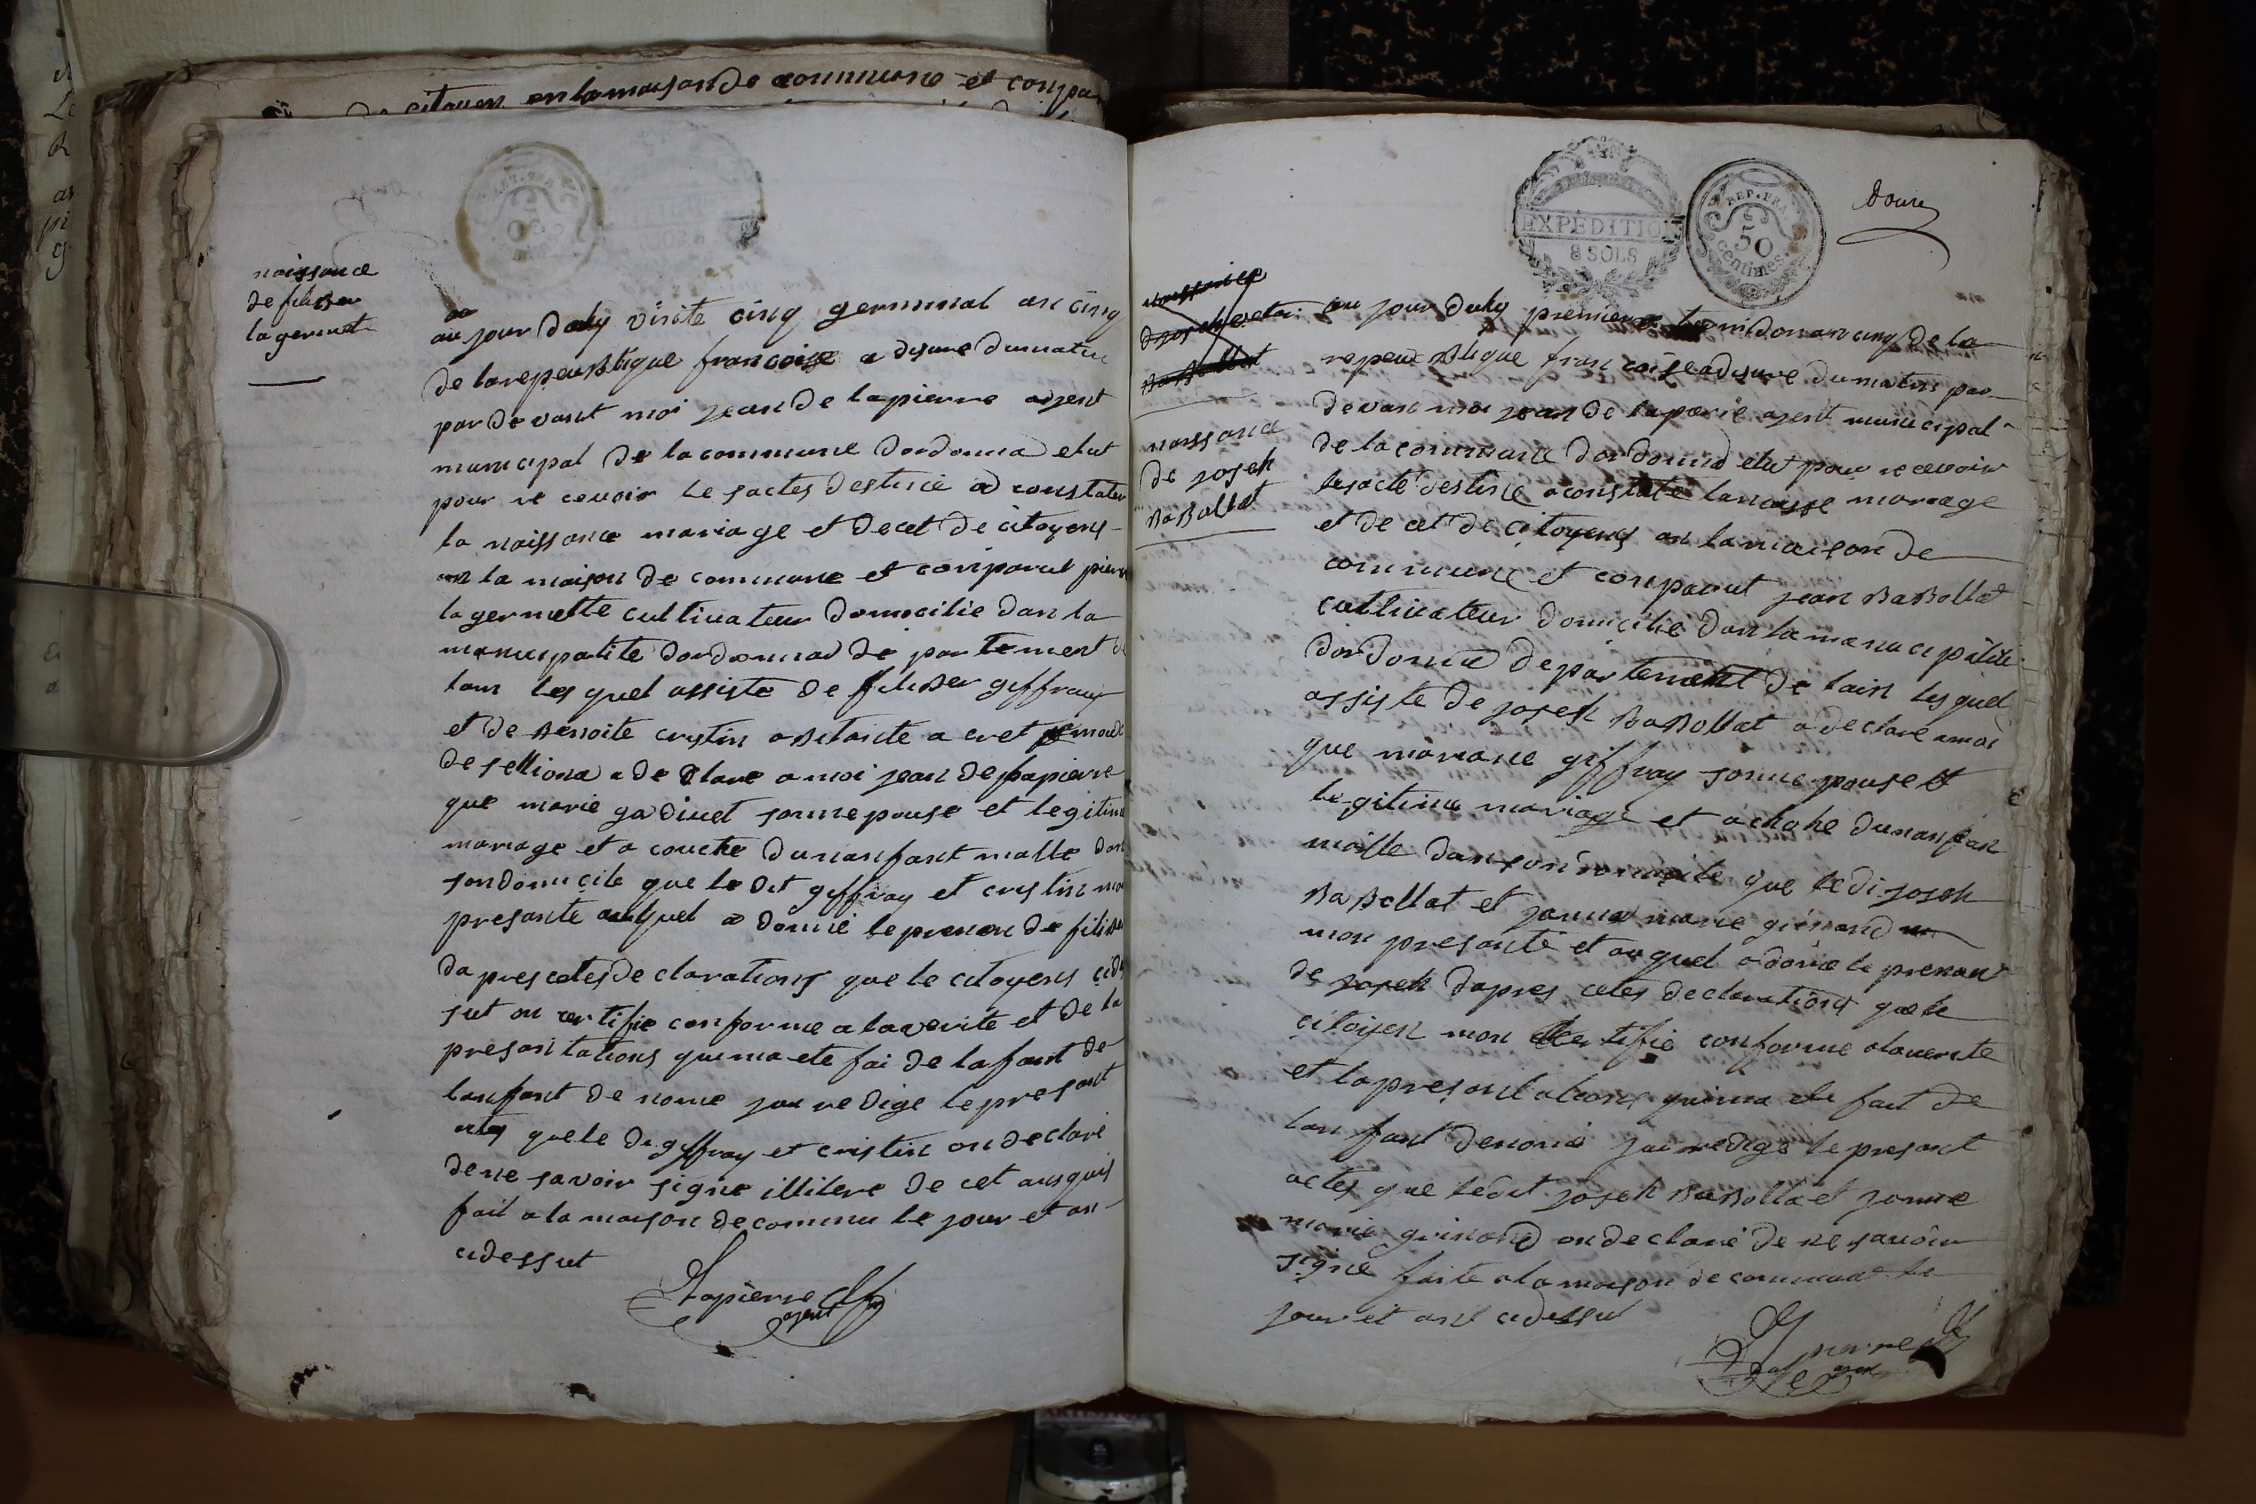 de citoyen en la maison de commune et conpa
naissance
de filiber
la germet
au jour duhy vinte cinq germinal an cinq
de la repeublique francoise a disure du matin
par devant moi jean de lapierre ajent
municipal de la commune dordonna elut
pour re cevoir le s actes destinée a constater
la naissance mariage et decet de citoyens
en la maison de commune et conparut pierre
la germette cultivateur domicilie dan la
manicipalite dordonnad de partement de
lain les quel assiste de filiber geffray
et de benoite cristin
de selliona a de clare a moi jean de lapierre
que marie gadivet sonne pouse et legitime
mariage et a couche dunanfant malle dan
son domicile que le dit geffray et cristin mon
presante auquel a donné le prenon de filiber
da pres cetes de clarations que le citoyens cide
sut on certifie conforme a la verite et de la
presantations quima ete fai de lafant de
lanfant de nome jai re dige le presant
actes quele di geffray et cristin on declaré
dene savoir signe illitere de cet anquis
fait a la maison de commu le jour et an
cidessut
Lapierre
agent
EXPÉDITION
8 SOLS
REP. FRA.
50
centimes
douze
naissance
de joseh
BaBollat
au jour duhy premier an cinq de la
repeublique francoise a disure du matin par
devan moi jean de lapierre ajent municipal
de la commune dordonna elut pour re cevoir
lesacte destine a constate lanaisse mariage
et de cet de citoyens an la maison de
commune et conparut jean BaBollat
cultivateur domicilie dan la manicipalite
dordonna departement de lain lesquel
assiste de joseh BaBollat a declare amoi
que mariane giffray sonne pouse et
legitime mariage et a chohe dunanfan
malle dan son domicile que ledi joseh
BaBollat et janne marie guinand
mon presante et auquel a donné le prenan
de joseh dapres cetes declarations que le
citoyen mon certifie conforme alaverite
et lapresantations quima ete fait de
lanfant denomé jai redige le presant
actes que ledit joseh BaBollat et janne
marie guinand on declaré de ne savoir
signe faite a la maison de commune le
jour et ant cidessut
Lapierre